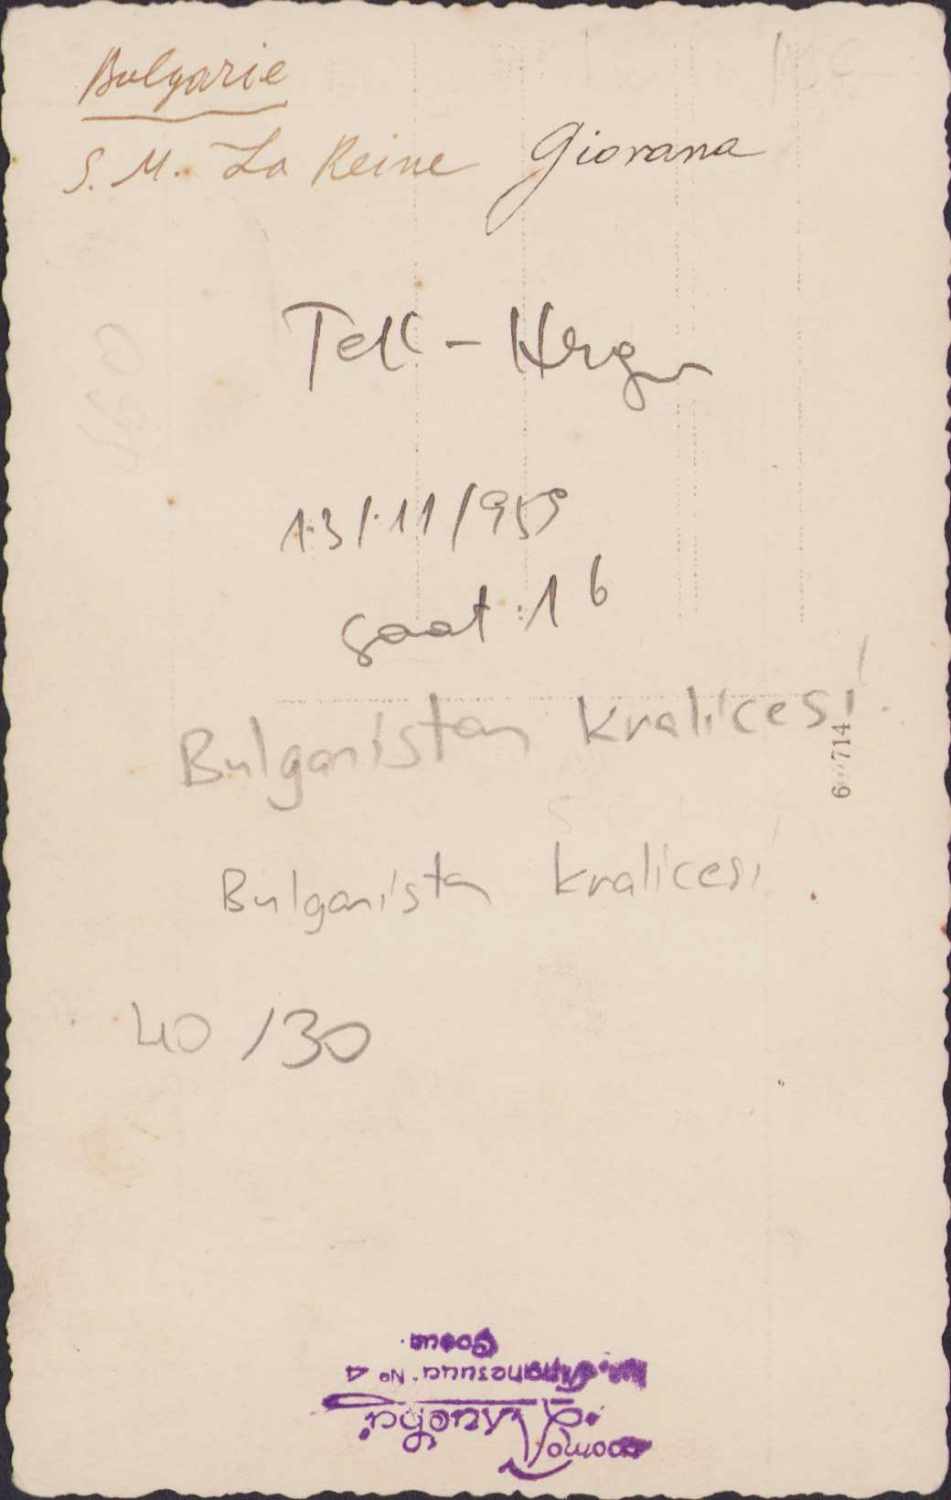 Bulgarie
S. M. La Reine Giovana
Tek -
13/11/959
saat :16
Bulgaristan kraliçesi
714
Bulgaristan kralicesi
40 /30
No 4